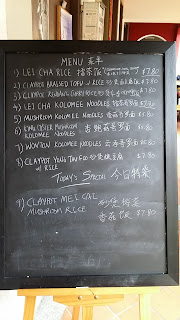 MENU 菜单
1) LEI CHA RICE 擂茶饭 $7.80
2) CLAYPOT BRAISED TOFU RICE $7.80
3) CLAYPOT RENDANG CURRY RICE $7.80
4) LEI CHA KOLOMEE NOODLES 擂茶哥罗面 $7.80
5) MUSHROOM KOLOMEE NOODLES 香菇哥罗面 $7.80
6) KING OYSTER MUSHROOM 杏鲍菇哥罗面 $7.80
KOLOMEE NOODLES
7) WONTON KOLOMEE NOODLES 云吞哥罗面 $7.80
8) CLAYPOT YONG TAU FOO $7.80
W RICE
TODAY'S SPECIAL 今日特菜
9) CLAYPOT MEI CAI
MUSHROOM RICE 香菇饭 $7.80